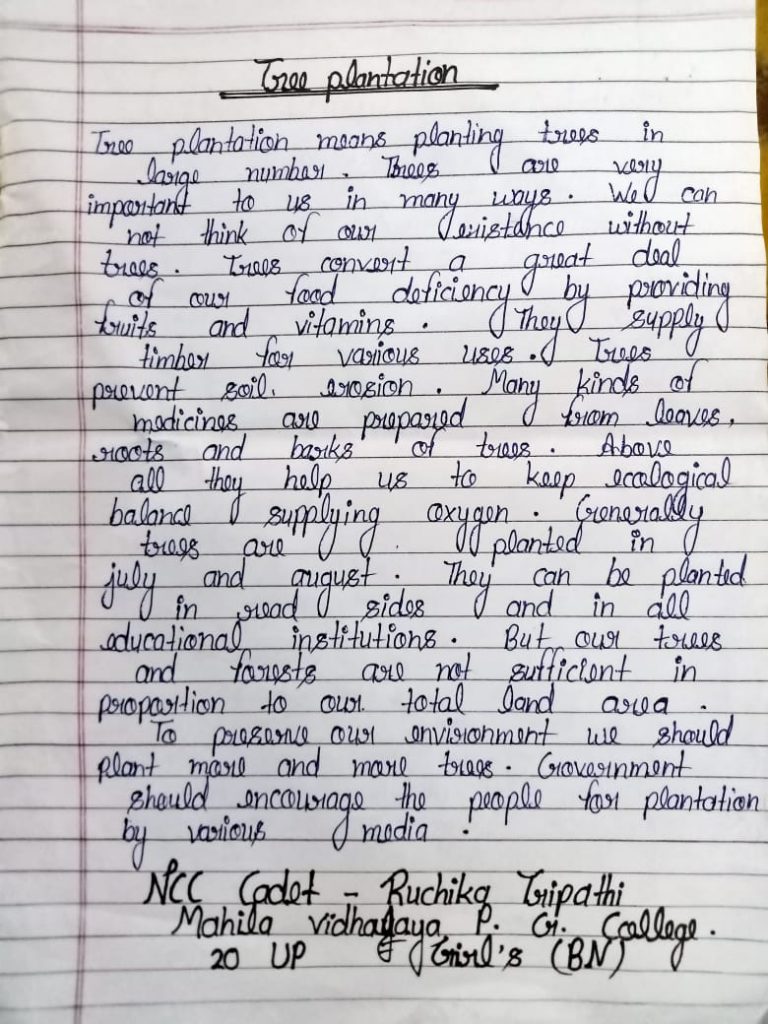 Tree plantation
Tree plantation means planting trees in
large number. Trees are very
important to us in many ways. We can
not think of our existance without
trees. Trees convert a great deal
of our food deficiency by providing
fruits and vitamins. They supply
timber for various uses. Trees
prevent soil. erosion. Many kinds of
medicines are prepared from leaves,
roots and barks of trees. Above
all they help us to keep ecological
balance supplying oxygen. Generally
trees are planted in
july and august. They can be planted
in road sides and in all
educational institutions. But our trees
and forests are not sufficient in
proportion to our total land area.
To preserve our environment we should
plant more and more trees. Government
should encourage the people for plantation
by various media.
NCC Cadet - Ruchika Tripathi
Mahila P. G. College.
20 UP Girl's (BN)